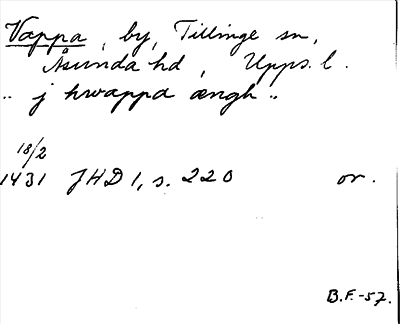 Vappa, by, Tillinge sn,
Åsunda hd, Upps. l.
"j hwappa ængh"
18/2
1431 JHD 1, s. 220 or.
B.F.-57.